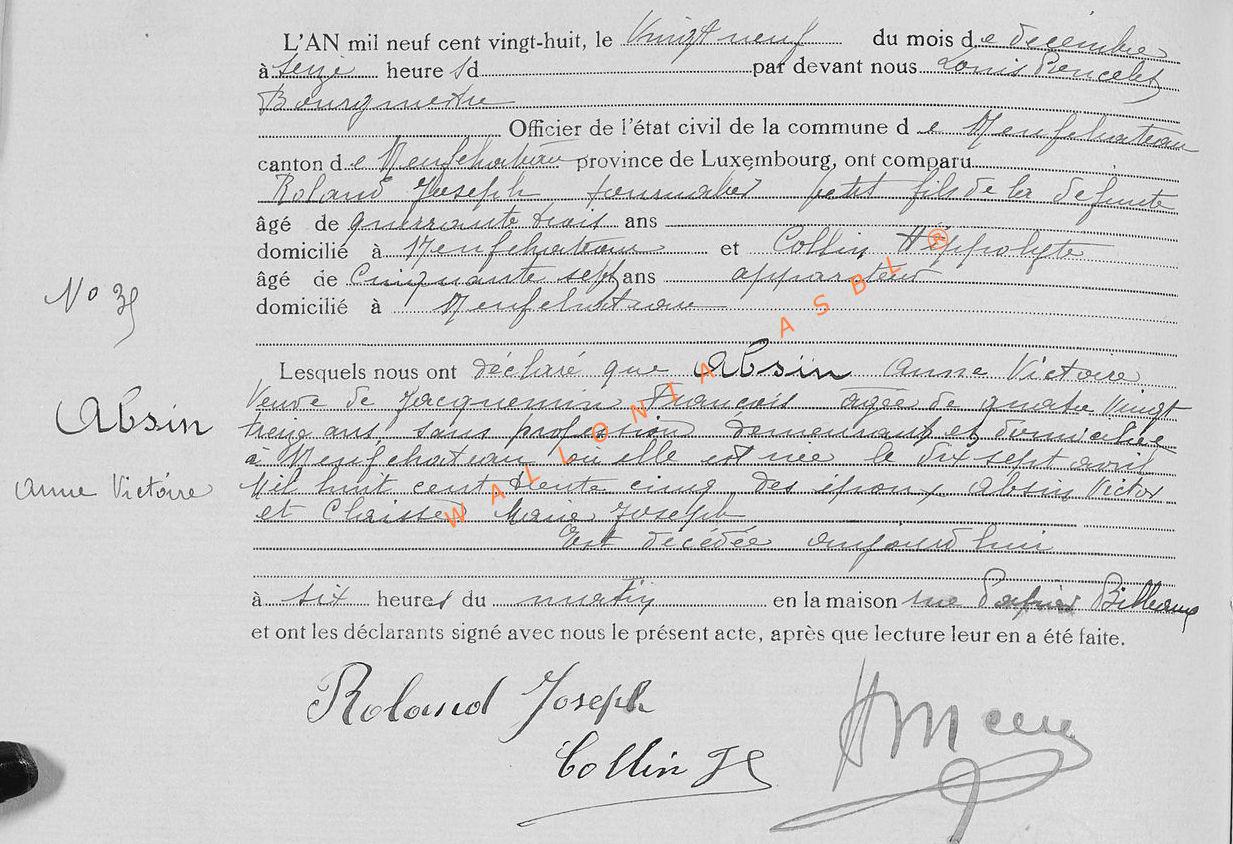 L'AN mil neuf cent vingt-huit, le Vingt neuf du mois de décembre
à seize heures d par devant nous Louis Poncelet
Bourgmestre
Officier de l'état civil de la commune de Neufchateau
canton de Neufchateau province de Luxembourg, ont comparu
Roland Joseph journalier petit fils de la défunte
âgé de quarrante trois ans
domicilié à Neufchateau et Collin Hippolyte
âgé de Cinquante sept ans appariteur
No 35
domicilié à Neufchateau
Lesquels nous ont déclaré que Absin Anne Victoire
Veuve de Jacquemin François agée de quatre Vingt
Absin
treize ans, sans profession demeurant et domiciliée
à Neufchateau ou elle est née le dix sept avril
Anne Victoire
Mil huit cent trente cinq des époux Absin Victor
et Claisse Marie Joseph
Est décédée aujourd'hui
à six heures du matin en la maison rue Billaux
et ont les déclarants signé avec nous le présent acte, après que lecture leur en a été faite.
Roland Joseph
Collin
WALLONIA ASBL ®